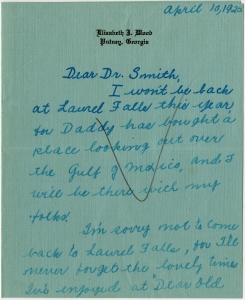 April 10, 1925
Elizabeth J. Wood
Putney, Georgia
Dear Dr. Smith,
I won't be back
at Laurel Falls this year
for Daddy has bought a
place looking out over
the Gulf of Mexico, and I
will be there with my
folks.
I'm sorry not to come
back to Laurel Falls, for I'll
never forget the lovely times
I've enjoyed at Dear Old